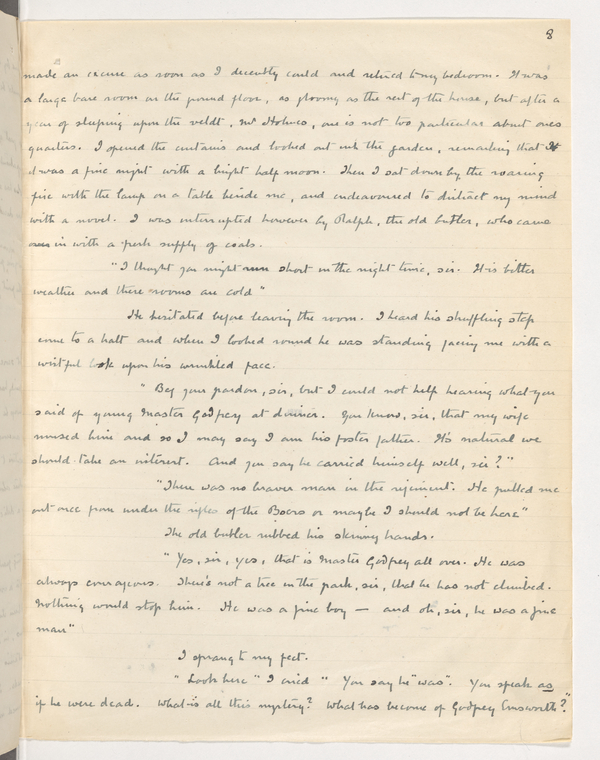 8
made an excuse as soon as I decently could and retired to my bedroom. It was
a large bare room on the ground floor, as gloomy as the rest of the house, but after a
year of sleeping upon the veldt, Mr Holmes, one is not too particular about ones
quarters. I opened the curtains and looked out into the garden, remarking that It
it was a fine night with a bright half moon. Then I sat down by the roaring
fire with the lamp on a table beside me, and endeavoured to distract my mind
with a novel. I was interrupted however by Ralph, the old butler, who came
in with a fresh supply of coals.
"I thought you might run short in the night time, sir. It is bitter
weather and these rooms are cold"
He hesitated before leaving the room. I heard his shuffling step
come to a halt and when I looked round he was standing facing me with a
wistful look upon his wrinkled face.
"Beg your pardon, sir, but I could not help hearing what you
said of young Master Godfrey at dinner. You know, sir, that my wife
nursed him and so I may say I am his foster father. It's natural we
should take an interest. And you say he carried himself well, sir?"
"There was no braver man in the regiment. He pulled me
out once from under the rifles of the Boers or maybe I should not be here"
The old butler rubbed his skinny hands.
"Yes, sir, yes, that is Master Godfrey all over. He was
always courageous. There's not a tree in the park, sir, that he has not climbed.
Nothing would stop him. He was a fine boy — and oh, sir, he was a fine
man"
I sprang to my feet.
"Look here" I cried "You say he "was". You speak as
if he were dead. What is all this mystery? What has become of Godfrey Emsworth?"